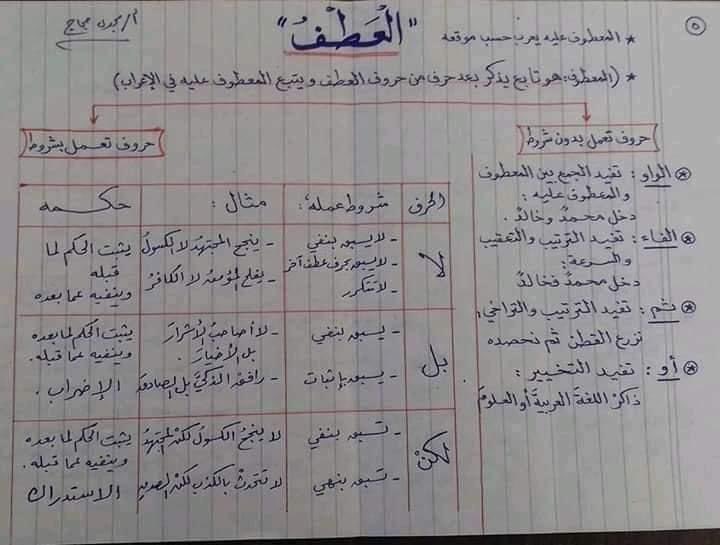 ٥
"العَطفُ"
أ/ مجدى حجاج
* المعطوف عليه يعرب حسب موقعه
* (المعطوف: هو تابع يذكر بعد حرف من حروف العطف ويتبع المعطوف عليه في الإعراب)
حروف تعمل بدون شروط
* الواو: تفيد الجمع بين المعطوف
والمعطوف عليه:
دخل محمدٌ وخالدٌ.
* الفاء: تفيد الترتيب والتعقيب
والسرعة:
دخل محمدٌ فخالدٌ
* ثم: تفيد الترتيب والتراخي:
نزرع القطن ثم نحصده
* أو: تفيد التخيير:
ذاكرْ اللغةَ العربيةَ أو العلومَ
حروف تعمل بشروط
الحرف شروط عمله: مثال: حكمه
لا
- لا يسبق بنفي
- لا يسبق بحرف عطف آخر
- لا تتكرر
- ينجح المجتهدُ لا الكسولُ
- يفلح المؤمنُ لا الكافرُ
يثبت الحكم لما
قبله
وينفيه عما بعده
بل
- يسبق بنفي
- يسبق بإثبات
- لا أصاحبُ الأشرارَ
بل الأخيارَ.
- رافق الذكيَّ بل الصادقَ
يثبت الحكم لما بعده
وينفيه عما قبله.
الإضراب.
لكنْ
- تسبق بنفي
- تسبق بنهي
لا ينجحُ الكسولُ لكنْ المجتهدُ
لا تتحدثْ بالكذبِ لكنْ الصدقِ
يثبت الحكم لما بعده
وينفيه عما قبله.
الاستدراك